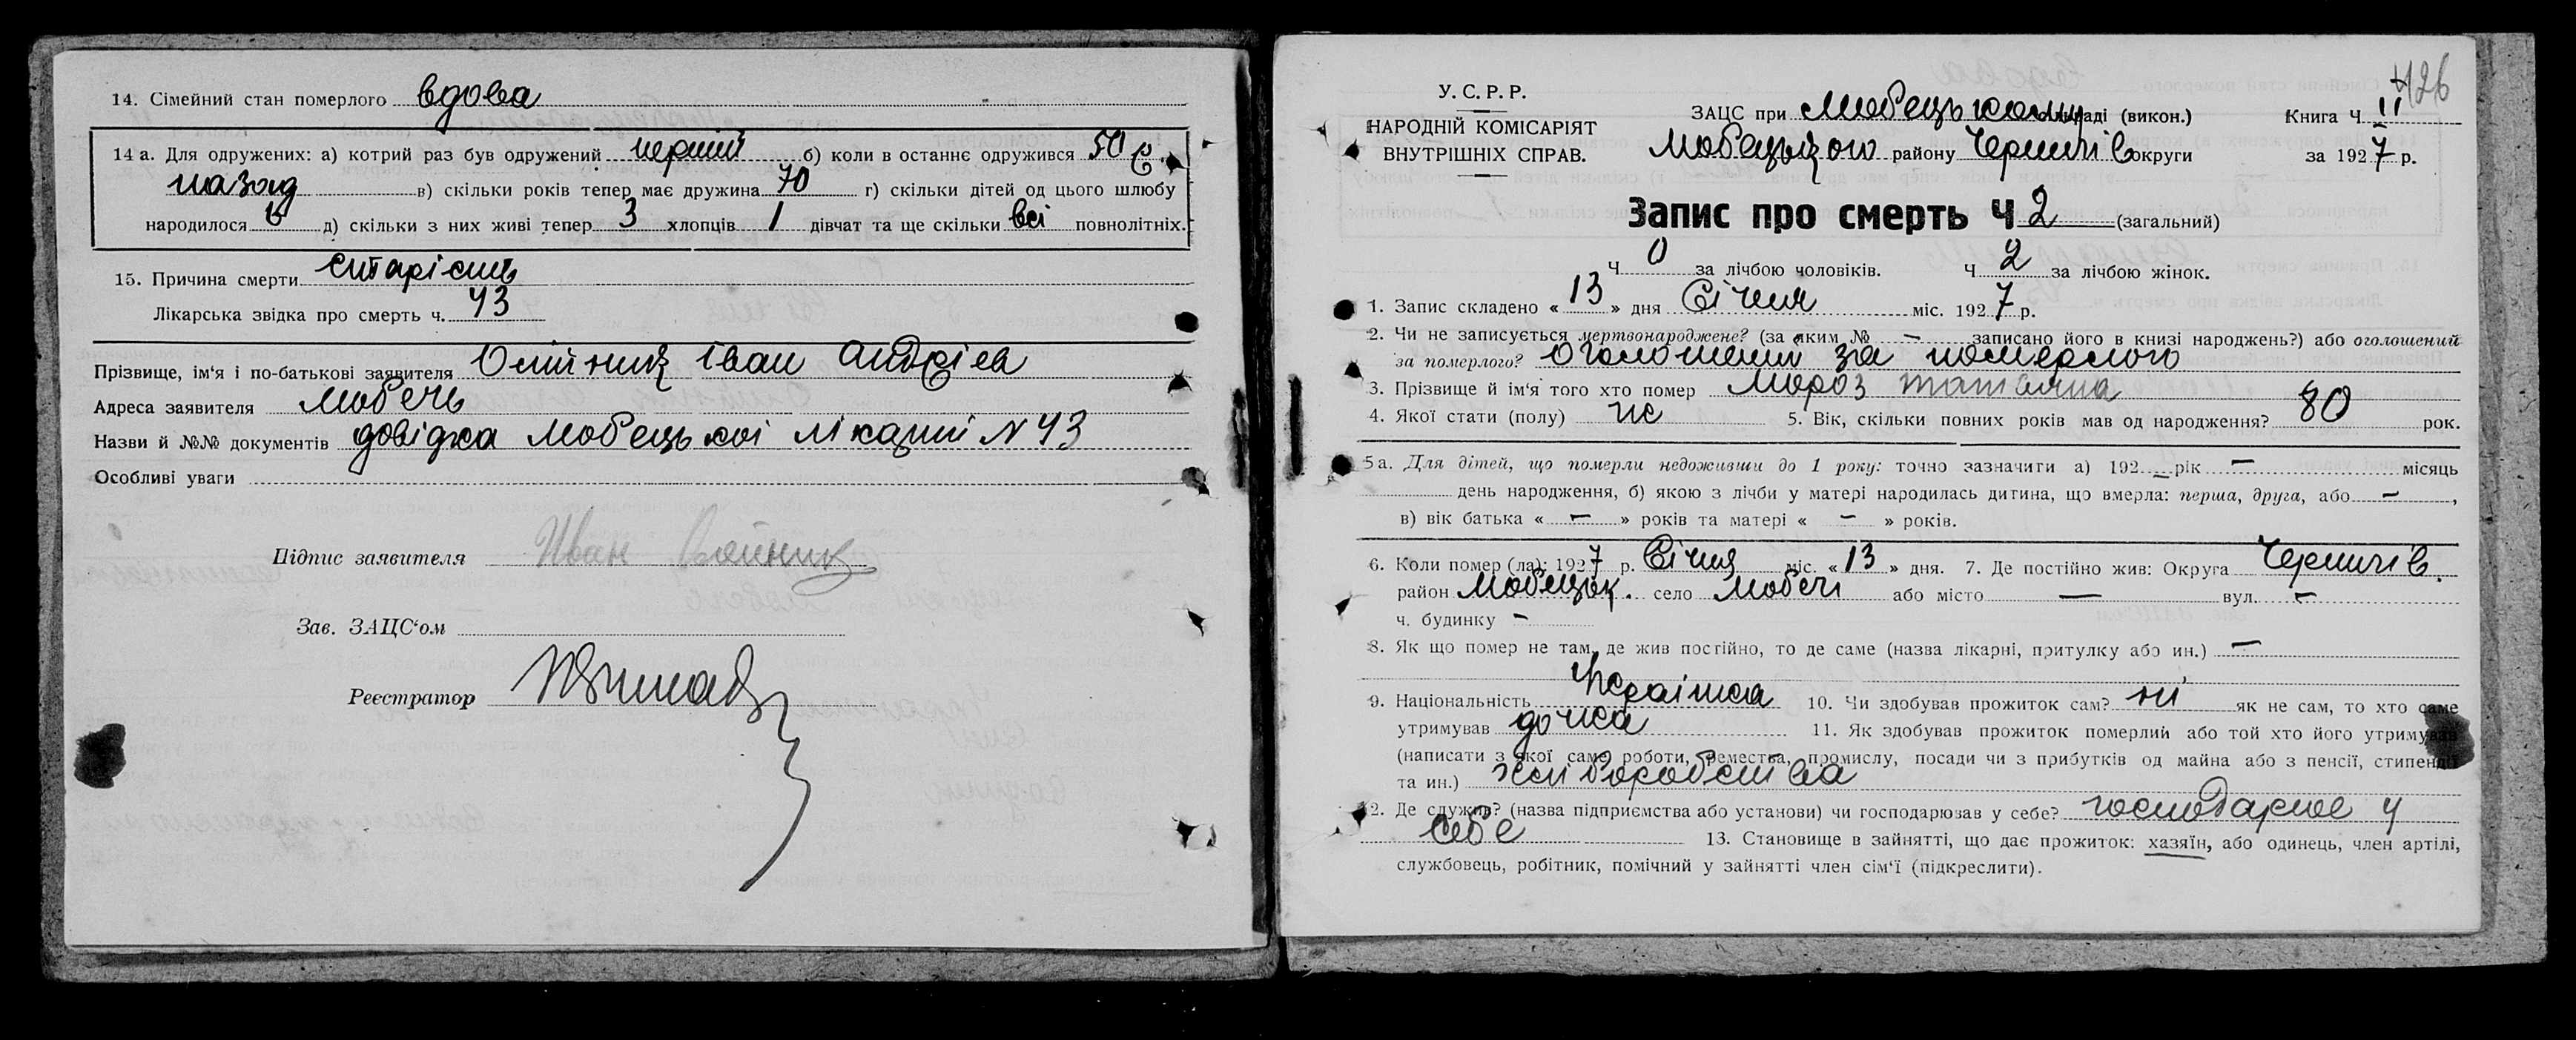 14. Сімейний стан померлого вдова
14 а. Для одружених: а) котрий раз був одружений перший б) коли в останнє одружився 50 р.
назад в) скільки років тепер має дружина 70 г) скільки дітей од цього шлюбу
народилося 6 д) скільки з них живі тепер 3 хлопців 1 дівчат та ще скільки всі повнолітніх.
15. Причина смерти старість
Лікарська звідка про смерть ч. 43
Прізвище, ім'я і по-батькові заявителя Олійник Іван Андрієв
Адреса заявителя Любеч
Назви й №№ документів довідка Любецької лікарні N 43
Особливі уваги
Підпис заявителя Иван Олейник
Зав. ЗАЦС'ом
Реєстратор
426
У. С. Р. Р.
НАРОДНІЙ КОМІСАРІЯТ
ВНУТРІШНІХ СПРАВ.
ЗАЦС при Любецькому раді (викон.) Книга Ч. II
Любецького району Чернигів округи за 1927 р.
Запис про смерть Ч 2 (загальний)
Ч 0 за лічбою чоловіків. Ч 2 за лічбою жінок.
1. Запис складено « 13 » дня Січня міс. 1927 р.
2. Чи не записується мертвонароджене? (за яким № — записано його в книзі народжень?) або оголошений
за померлого? оголошений за померлого
3. Прізвище й ім'я того хто помер Мороз Татяна
4. Якої стати (полу) ж 5. Вік, скільки повних років мав од народження? 80 рок.
5 а. Для дітей, що померли недоживши до 1 року: точно зазначити а) 192 — рік — місяць
день народження, б) якою з лічби у матері народилась дитина, що вмерла: перша, друга, або — ,
в) вік батька « — » років та матері « — » років.
6. Коли помер (ла): 1927 р. Січня міс. « 13 » дня. 7. Де постійно жив: Округа Чернигів.
район Любецьк. село Любечі або місто — вул. —
ч. будинку —
8. Як що помер не там, де жив постійно, то де саме (назва лікарні, притулку або ин.) —
9. Національність Українка 10. Чи здобував прожиток сам? ні як не сам, то хто саме
утримував дочка 11. Як здобував прожиток померлий або той хто його утримував
(написати з якої саме роботи, ремества, промислу, посади чи з прибутків од майна або з пенсії, стипендії
та ин.) хліборобства
12. Де служив? (назва підприємства або установи) чи господарював у себе? господарює у
себе 13. Становище в зайнятті, що дає прожиток: хазяїн, або одинець, член артілі,
службовець, робітник, помічний у зайнятті член сім'ї (підкреслити).